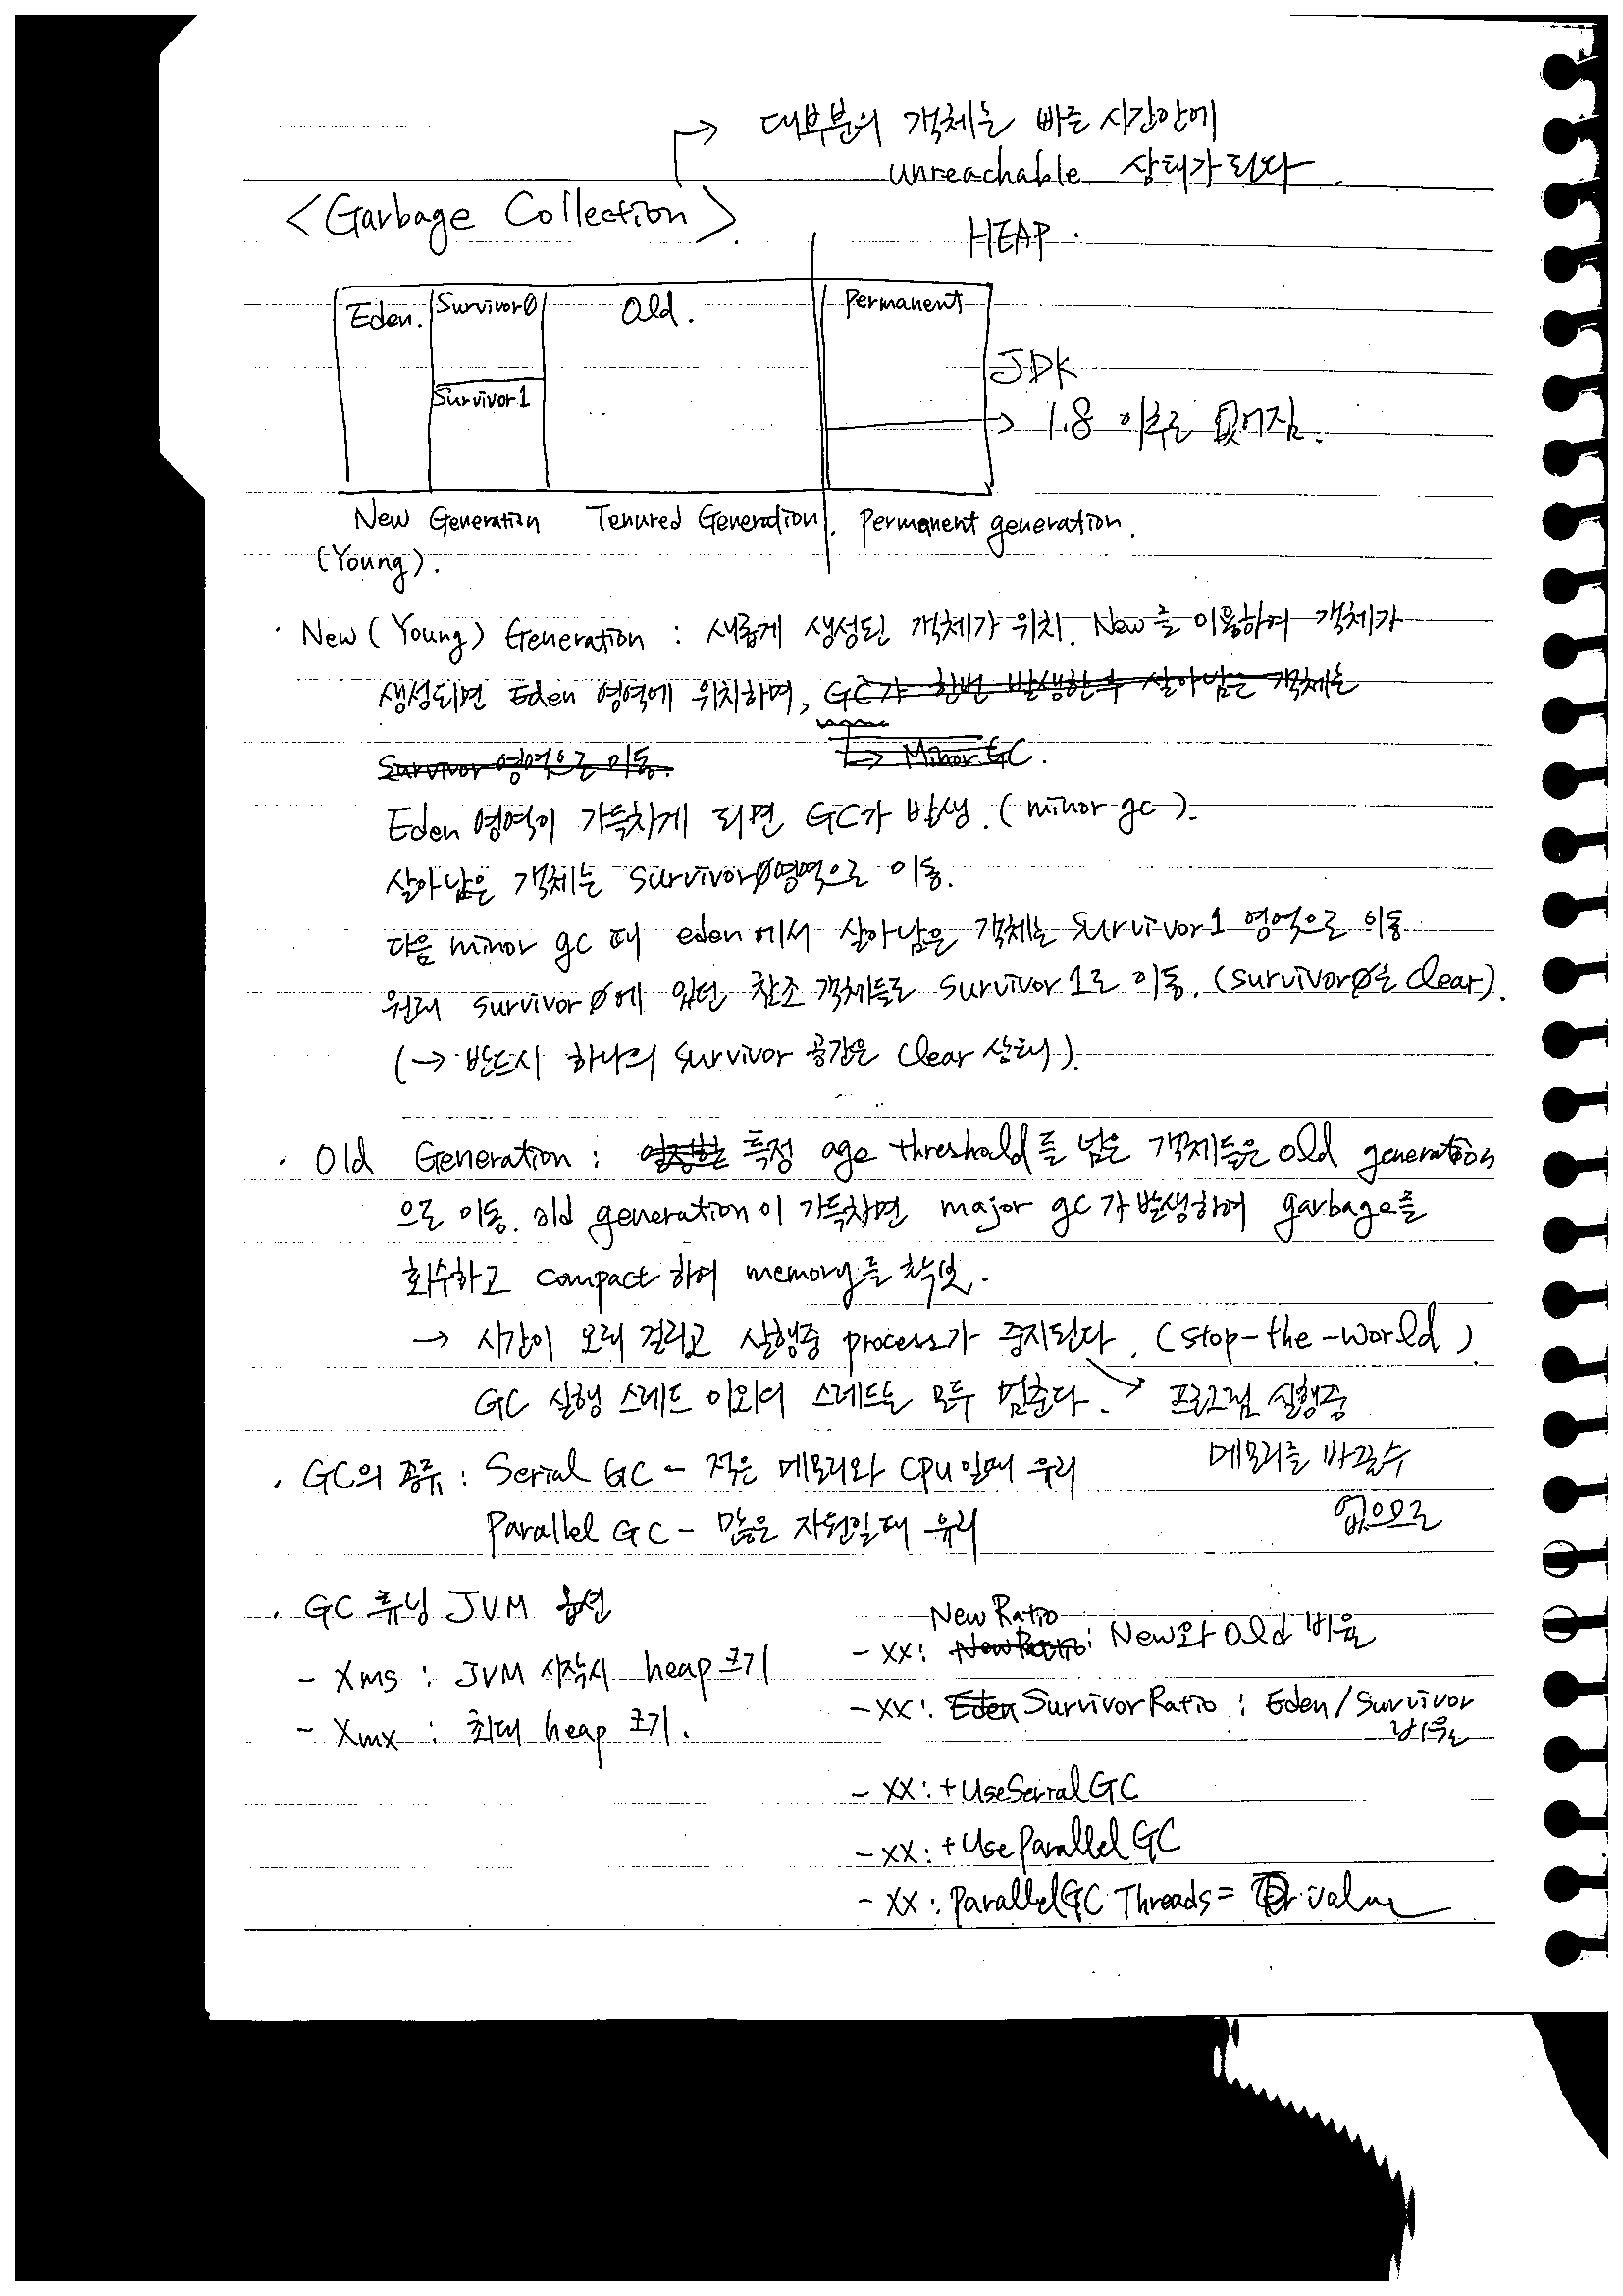 → 대부분의 객체는 빠른 시간안에
unreachable 상태가 된다.
<Garbage Collection>
HEAP
Eden. Survivor0 Old. Permanent
Survivor1
JDK
→ 1.8 이후로 없어짐.
New Generation Tenured Generation. Permanent generation.
(Young).
· New (Young) Generation : 새롭게 생성된 객체가 위치. New를 이용하여 객체가
생성되면 Eden 영역에 위치하며, GC가 한번 발생한 후 살아남은 객체는
Survivor 영역으로 이동. → Minor GC.
Eden 영역이 가득차게 되면 GC가 발생. (minor gc).
살아남은 객체는 Survivor0영역으로 이동.
다음 minor gc 때 eden에서 살아남은 객체는 Survivor1 영역으로 이동
원래 survivor0에 있던 참조 객체들로 survivor1로 이동. (survivor0는 clear).
(→ 반드시 하나의 survivor 공간은 clear 상태).
· Old Generation : 일정한 특정 age threshold를 넘은 객체들은 old generation
으로 이동. old generation이 가득차면 major gc가 발생하여 garbage를
회수하고 compact하여 memory를 확보.
→ 시간이 오래 걸리고 실행중 process가 중지된다. (stop-the-world)
GC 실행 스레드 이외의 스레드는 모두 멈춘다. → 프로그램 실행중
메모리를 바꿀수
없으므로
· GC의 종류 : Serial GC - 적은 메모리와 CPU일때 유리
Parallel GC - 많은 자원일때 유리
· GC 튜닝 JVM 옵션
- Xms : JVM 시작시 heap 크기
- Xmx : 최대 heap 크기.
New Ratio
- XX: NewRatio: New와 Old 비율
- XX: Eden SurvivorRatio : Eden/Survivor
비율
- XX: +UseSerialGC
- XX: +UseParallelGC
- XX: ParallelGC Threads= value